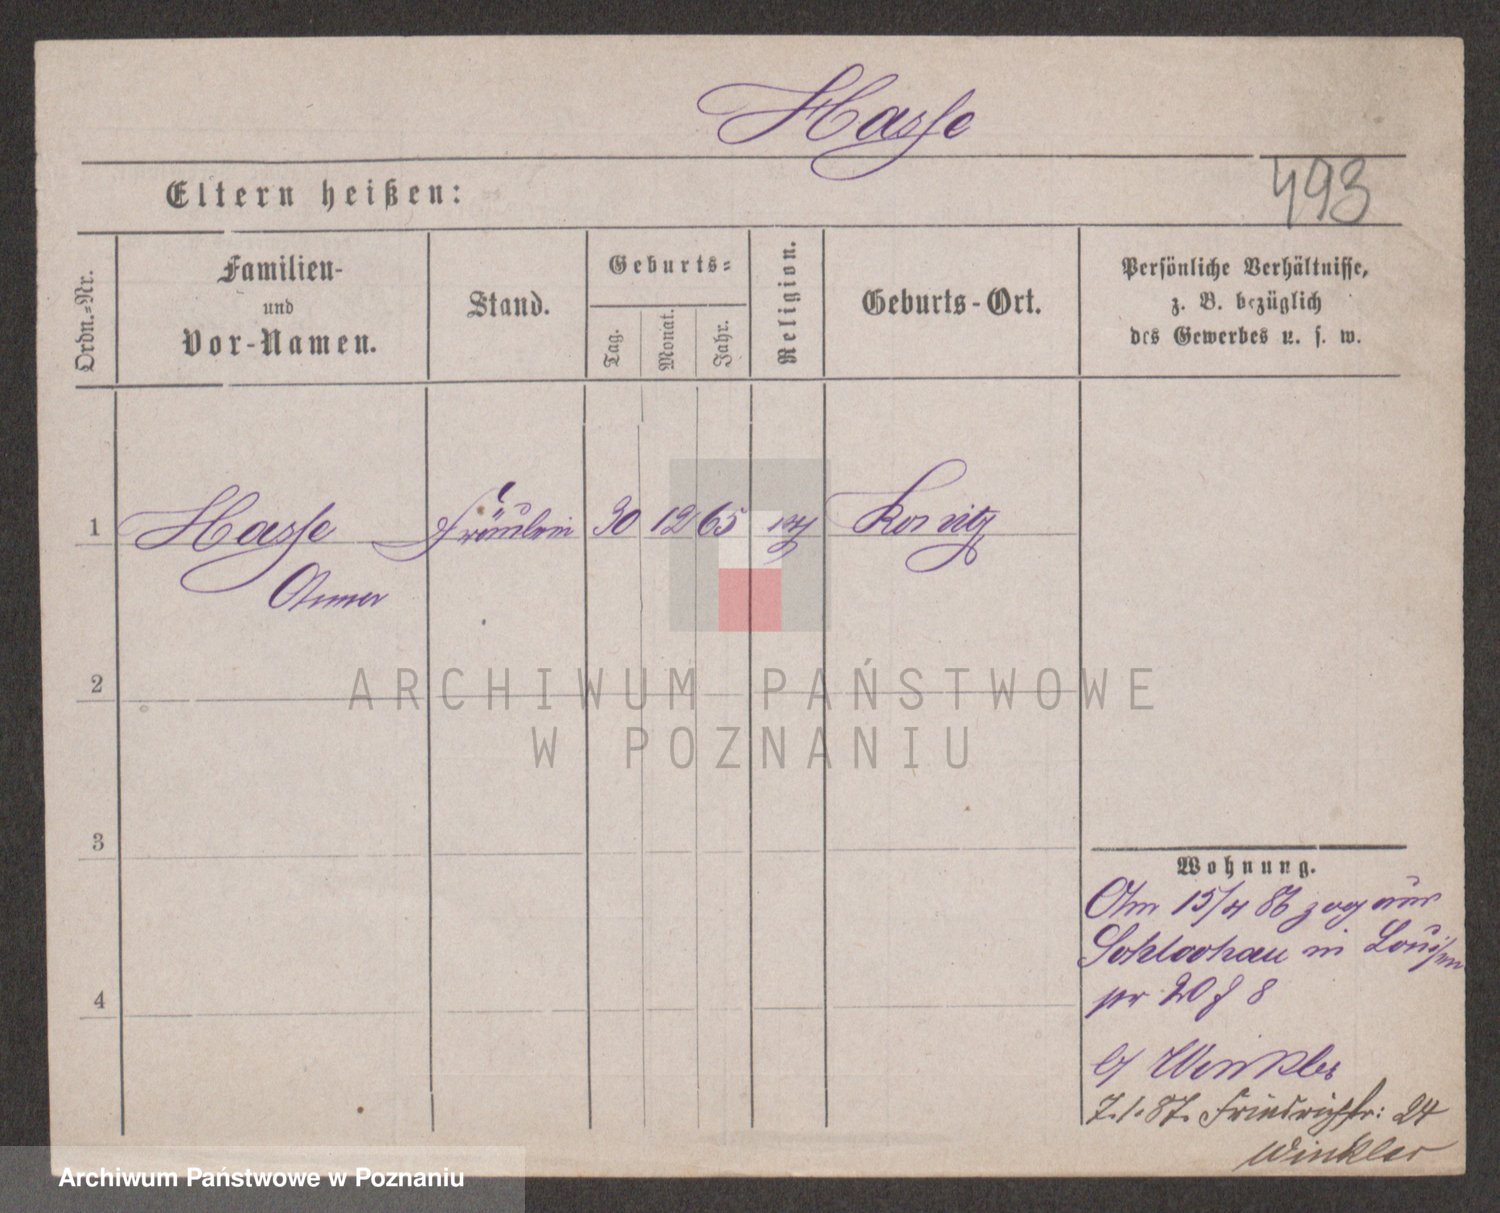 Hasse
493
Eltern heißen:
Ordn.-Nr.
Familien-
und
Vor-Namen.
Stand.
Geburts-
Tag.
Monat.
Jahr.
Religion.
Geburts-Ort.
Persönliche Verhältnisse,
z. B. bezüglich
des Gewerbes u. s. w.
1 Hasse Fräulein 30 12 65 Konitz
2
ARCHIWUM PAŃSTWOWE
W POZNANIU
3
4
Wohnung.
Am 15/4 86 zog aus
Schlochau in Louisen
20
Winkler
7.1.87. Friedrichstr: 24
Winkler
Archiwum Państwowe w Poznaniu